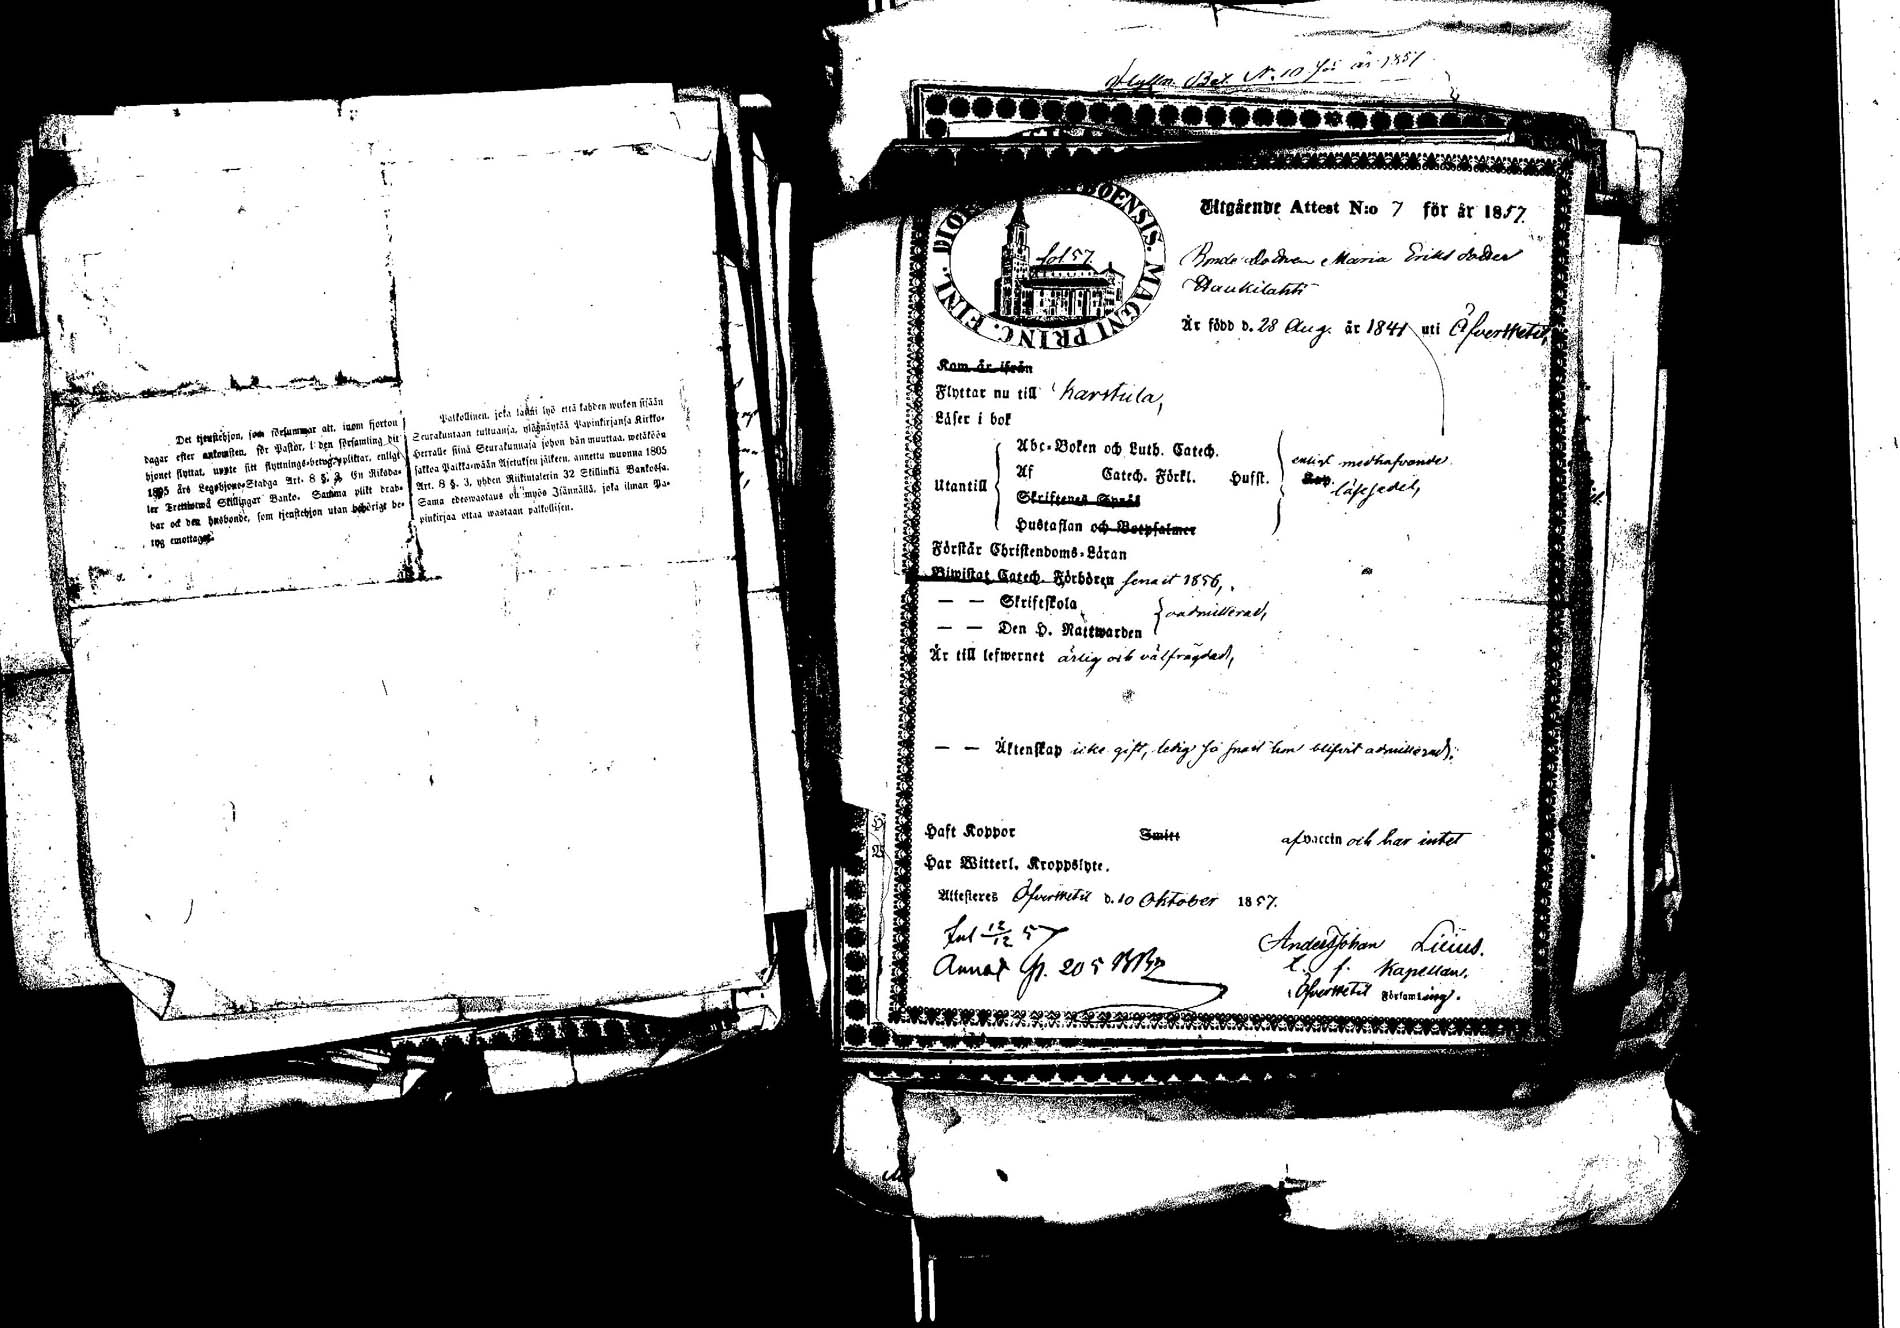 Det tjenstehjon, som försummar att, inom fjorton
dagar efter ankomsten, för Pastor, i den församling dit
hjonet flyttat, uppte sitt flyttnings-betyg, pliktar, enligt
1805 års Legohjons-Stadga Art. 8 §. 3, En Riksda-
ler Trettiotwå Skillingar Banko. Samma plikt drab-
bar ock den husbonde, som tjenstehjon utan behörigt be-
tyg emottager.
Palkollinen, joka laimi lyö että kahden wiikon sisään
Seurakuntaan tultuansa, ylösnäyttää Papinkirjansa Kirkko-
herralle siinä Seurakunnasa johon hän muuttaa, wetäköön
sakkoa Palkka-wään Asetuksen jälkeen, annettu wuonna 1805
Art. 8 §. 3, yhden Riikintalerin 32 Skillinkiä Bankossa.
Sama edeswastaus on myös Isännällä, joka ilman Pa-
pinkirjaa ottaa wastaan palkollisen.
Flyttn. Bet. N. 10 för år 1857
DIOE BOENSIS. MAGNI PRINC. FINL.
fol 57
Utgående Attest N:o 7 för år 1857.
Bonde Dottren Maria Eriks dotter
Haukilahti
Är född d. 28 Aug. år 1841 uti Öfvermetil,
Kom år ifrån
Flyttar nu till Karstula,
Läser i bok
Utantill
Abc-Boken och Luth. Catech.
Af Catech. Förkl. Hufst.
Skriftenes Språk
Hustaflan och Botpsalmer
enligt medhafvande
läsesedel,
Förstår Christendoms-Läran
Biwistat Catech. Förhören senast 1856,
— — Skriftskola
— — Den H. Nattwarden
oadmitterad,
Är till lefwernet ärlig och välfrägdad,
— — Äktenskap icke gift, ledig så snart hon blifvit admitterad.
Haft Koppor Smitt af vaccin och har intet
Har Witterl. Kroppslyte.
Attesteras Öfvermetil d. 10 Oktober 1857.
Anders Johan Licius.
t. f. Kapellan,
Öfvermetil Församling.
12/12 57
Annot. p. 205